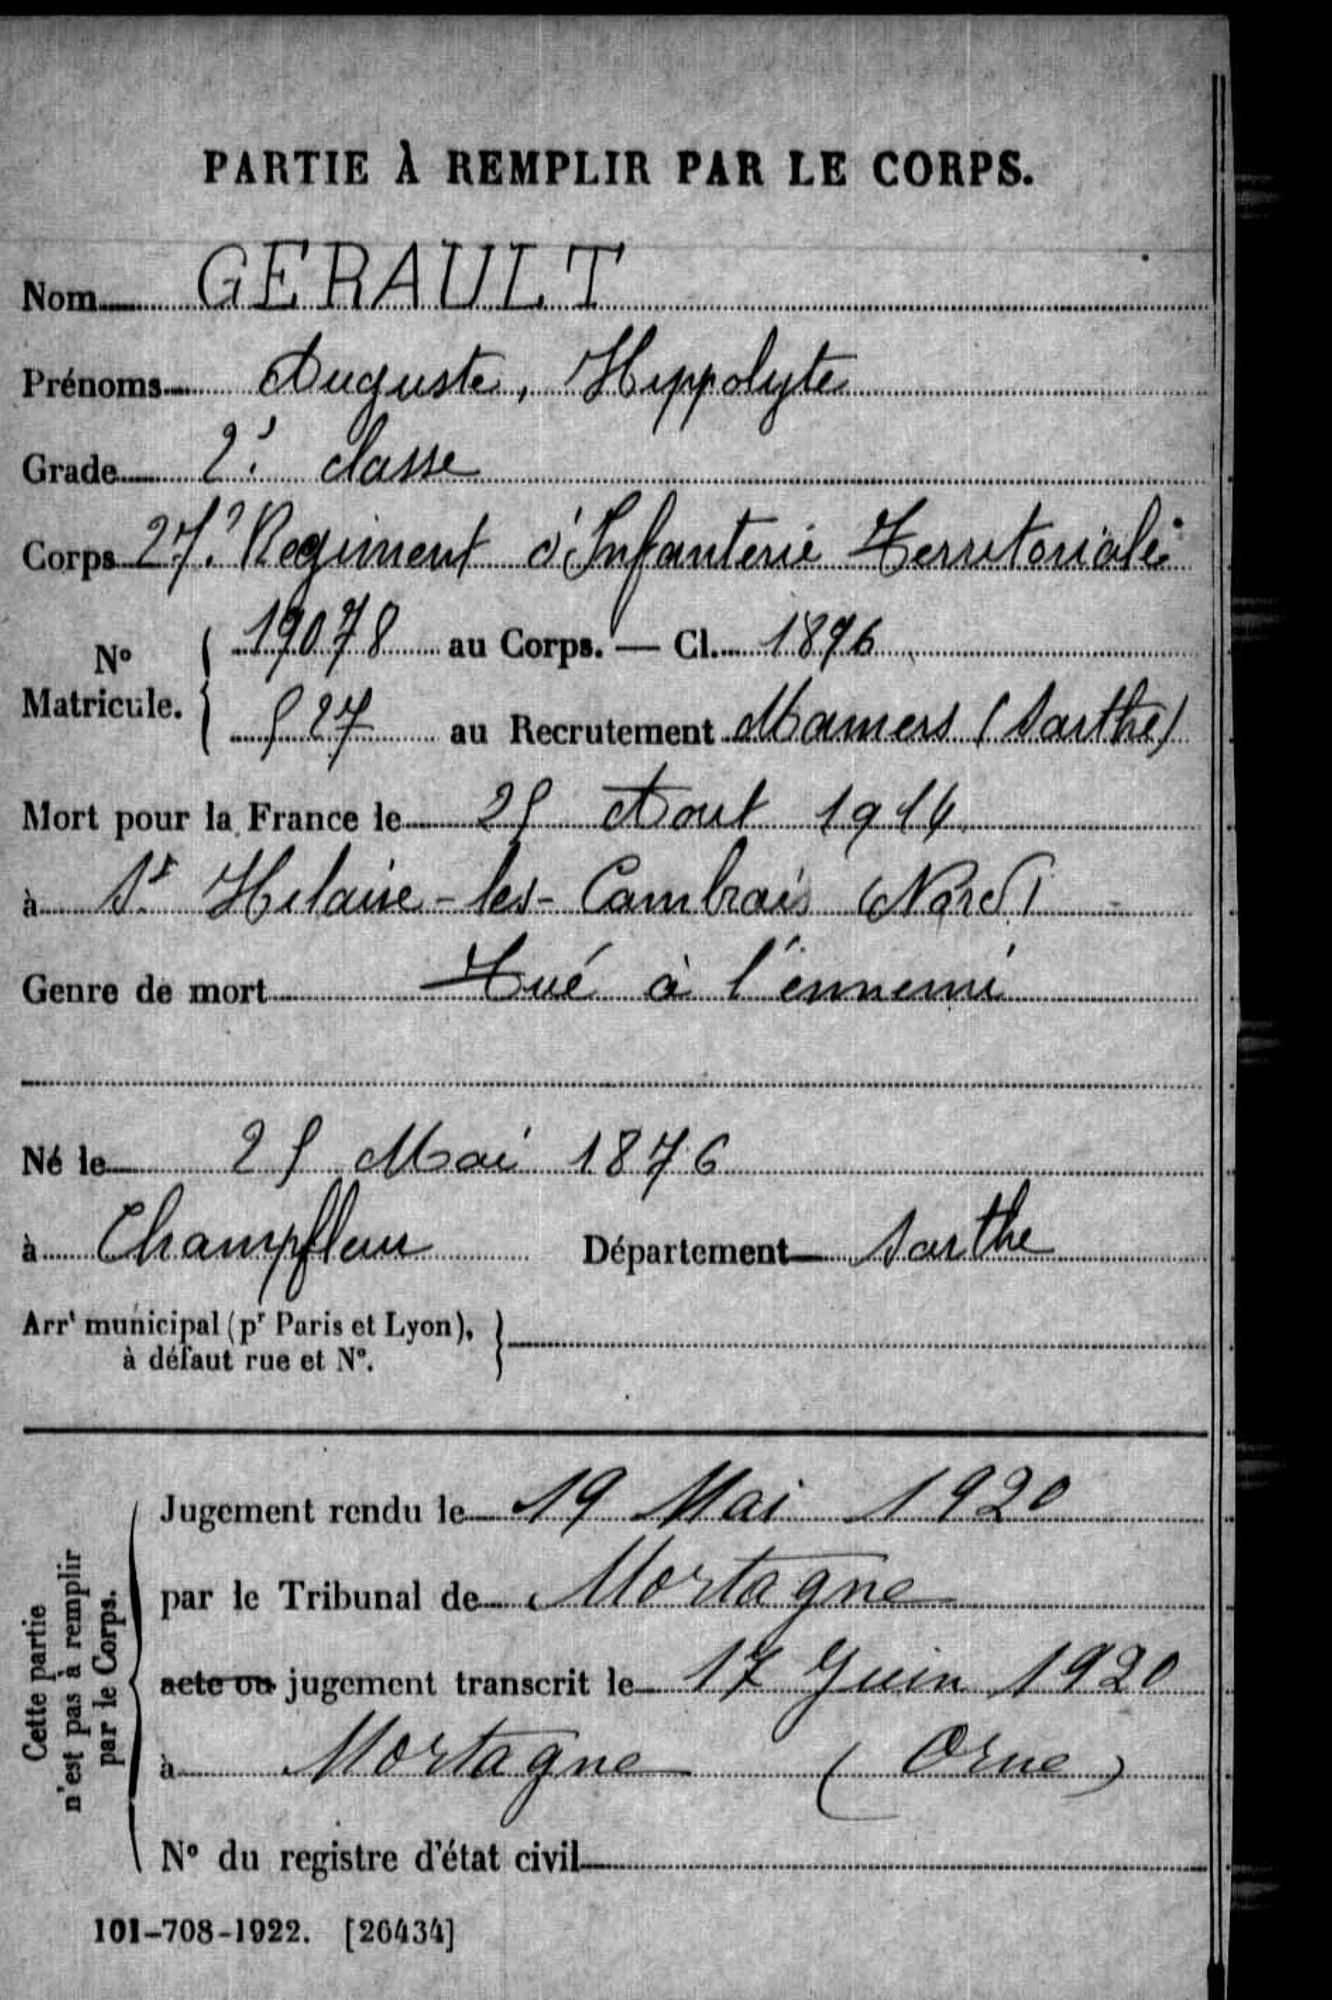 PARTIE À REMPLIR PAR LE CORPS.
Nom GERAULT
Prénoms Auguste, Hippolyte
Grade 2e classe
Corps 27e Regiment d'Infanterie Territoriale
No Matricule. { 19078 au Corps. — Cl. 1896
527 au Recrutement Mamers (Sarthe)
Mort pour la France le 25 Aout 1914
à St Hilaire-les-Cambrais (Nord)
Genre de mort Tué à l'ennemi
Né le 25 Mai 1876
à Champfleur Département Sarthe
Arrt municipal (pr Paris et Lyon), à défaut rue et No. }
Cette partie n'est pas à remplir par le Corps.
Jugement rendu le 19 Mai 1920
par le Tribunal de Mortagne
acte ou jugement transcrit le 17 Juin 1920
à Mortagne (Orne)
No du registre d'état civil
101-708-1922. [26434]